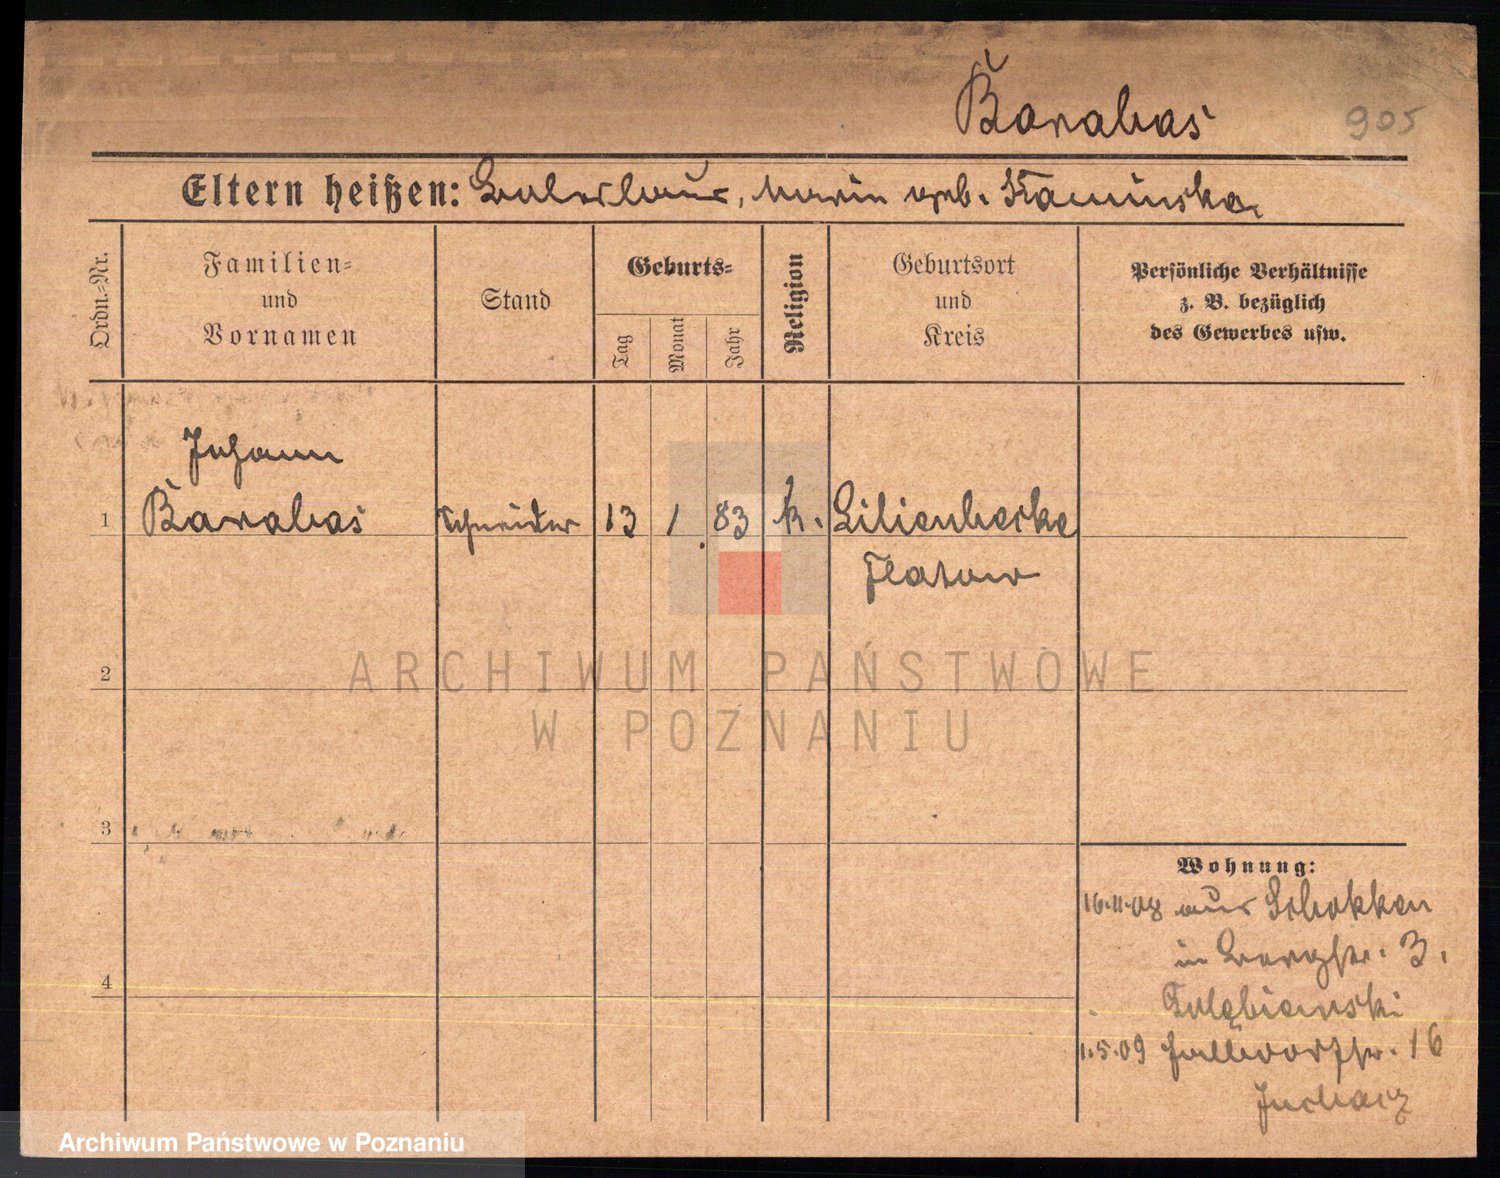 Barabas 905
Eltern heißen: Balerbaur, Marie geb. Kaminska
Ordn.-Nr.
Familien-
und
Vornamen
Stand
Geburts-
Tag
Monat
Jahr
Religion
Geburtsort
und
Kreis
Persönliche Verhältnisse
z. B. bezüglich
des Gewerbes usw.
Johann
1 Barabas Schneider 13 1. 83 k. Lilienhecke
Flatow
2
3
4
Wohnung:
16.11.08 aus Schokken
in Bergstr. 3.
Golębiewski
1.5.09 Halldorfstr. 16
Juchacz
ARCHIWUM PAŃSTWOWE
W POZNANIU
Archiwum Państwowe w Poznaniu